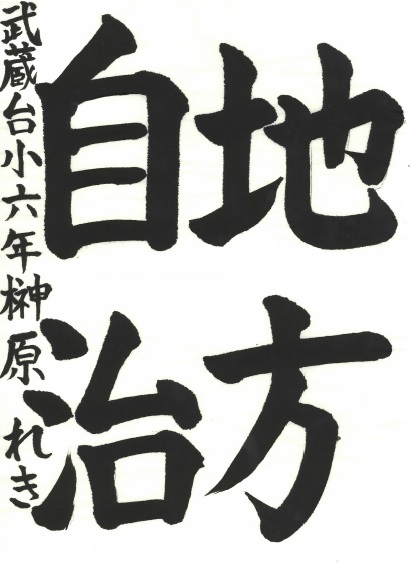 地方
自治
武蔵台小六年榊原れき